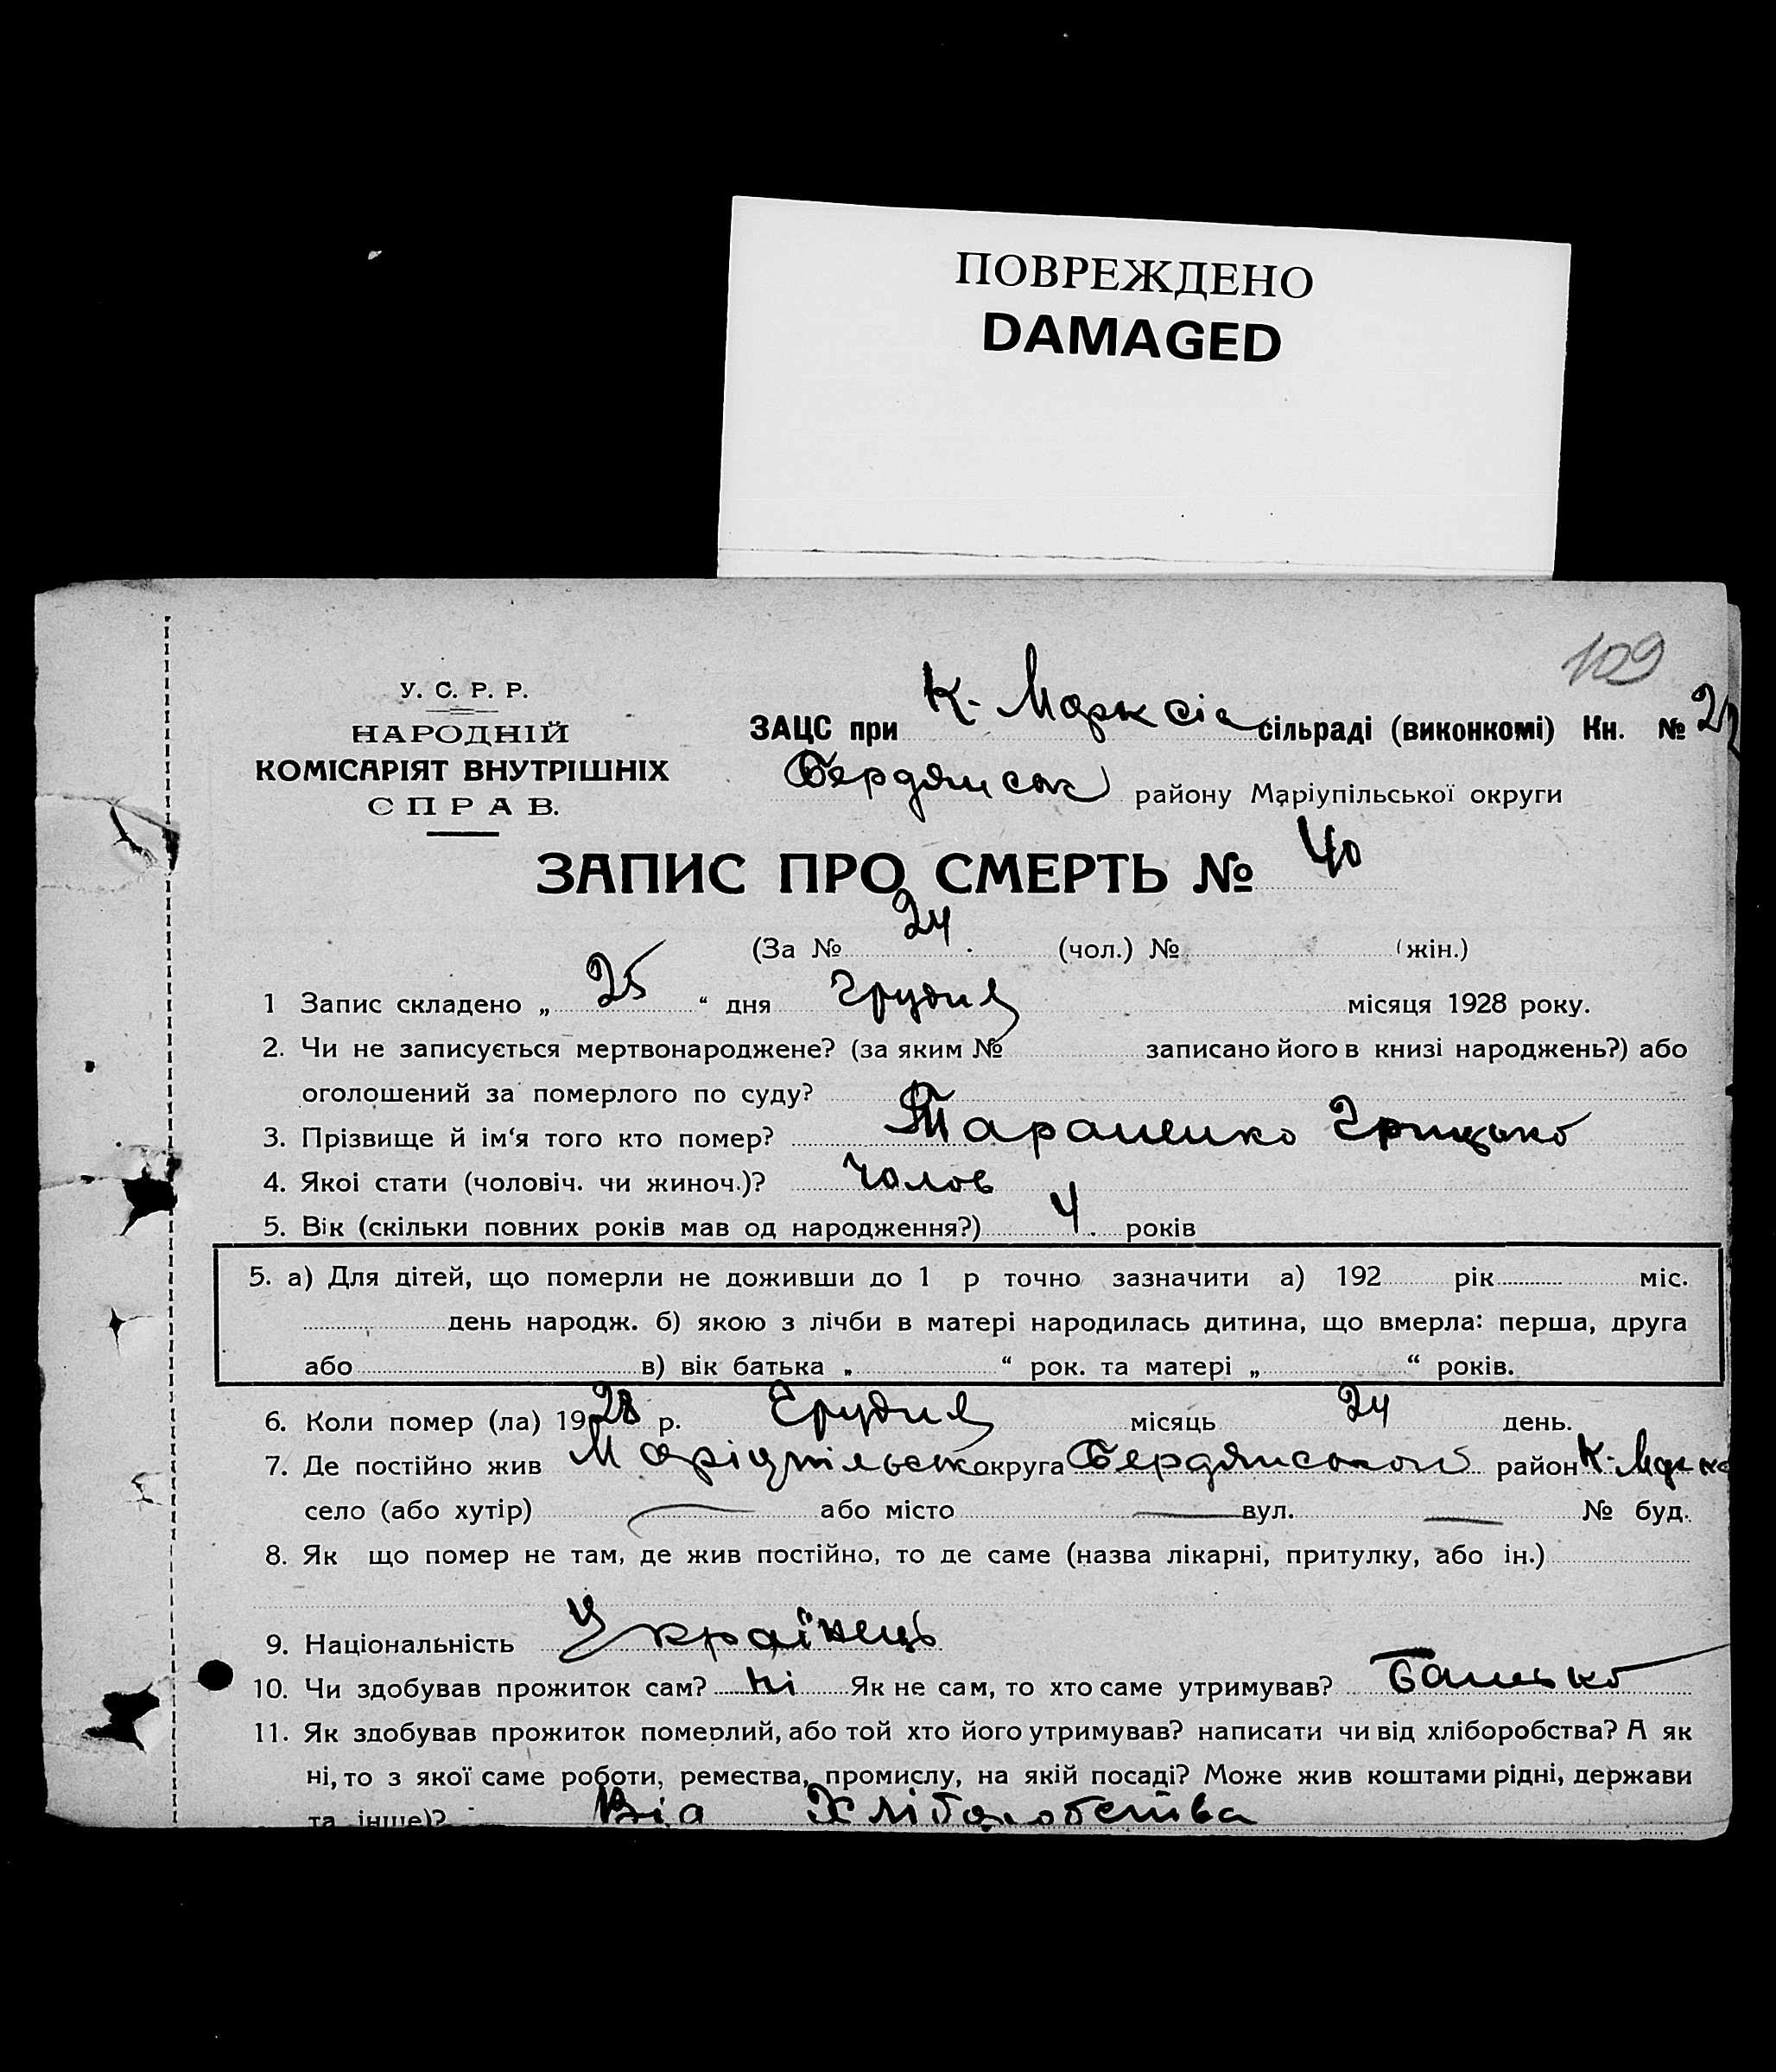 ПОВРЕЖДЕНО
DAMAGED
109
У. С. Р. Р.
НАРОДНІЙ
КОМІСАРІЯТ ВНУТРІШНІХ
СПРАВ.
ЗАЦС при К. Марксіа сільраді (виконкомі) Кн. № 2
Бердянськ району Маріупільської округи
ЗАПИС ПРО СМЕРТЬ № 40
(За № 24 (чол.) № (жін.)
1 Запис складено „ 25 “ дня Грудня місяця 1928 року.
2. Чи не записується мертвонароджене? (за яким № записано його в книзі народжень?) або
оголошений за померлого по суду?
3. Прізвище й ім‘я того хто помер? Тараненко Грицько
4. Якоі стати (чоловіч. чи жиноч.)? Чолов
5. Вік (скільки повних років мав од народження?) 4 років
5. а) Для дітей, що померли не доживши до 1 р точно зазначити а) 192 рік міс.
день народж. б) якою з лічби в матері народилась дитина, що вмерла: перша, друга
або в) вік батька „ “ рок. та матері „ “ років.
6. Коли помер (ла) 1928 р. Грудня місяць 24 день.
7. Де постійно жив Маріупільськ округа Бердянського район К. Маркс
село (або хутір) — або місто — вул. — № буд.
8. Як що помер не там, де жив постійно, то де саме (назва лікарні, притулку, або ін.)
9. Національність Українець
10. Чи здобував прожиток сам? Ні Як не сам, то хто саме утримував? Батько
11. Як здобував прожиток померлий, або той хто його утримував? написати чи від хліборобства? А як
ні, то з якої саме роботи, ремества, промислу, на якій посаді? Може жив коштами рідні, держави
та інше)? Від Хліборобства